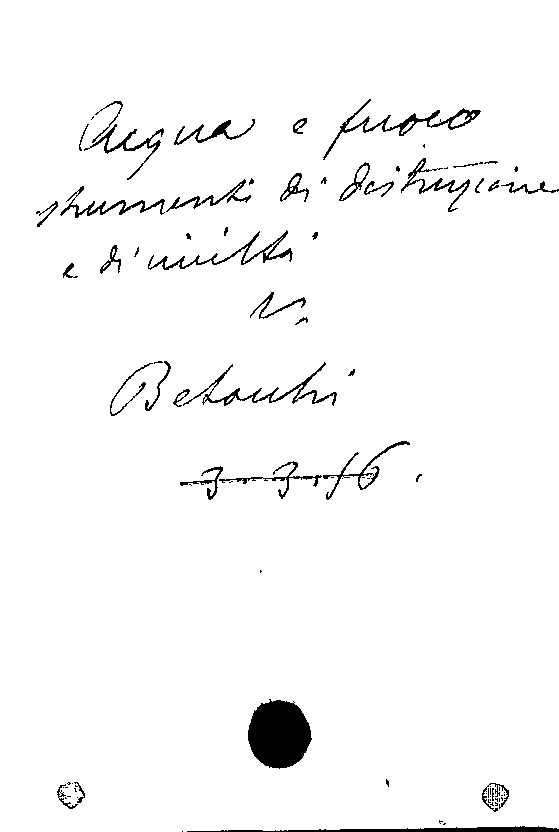 Acqua e fuoco
strumenti di distruzione
e di civiltà
V.
Betocchi
3.3.16.